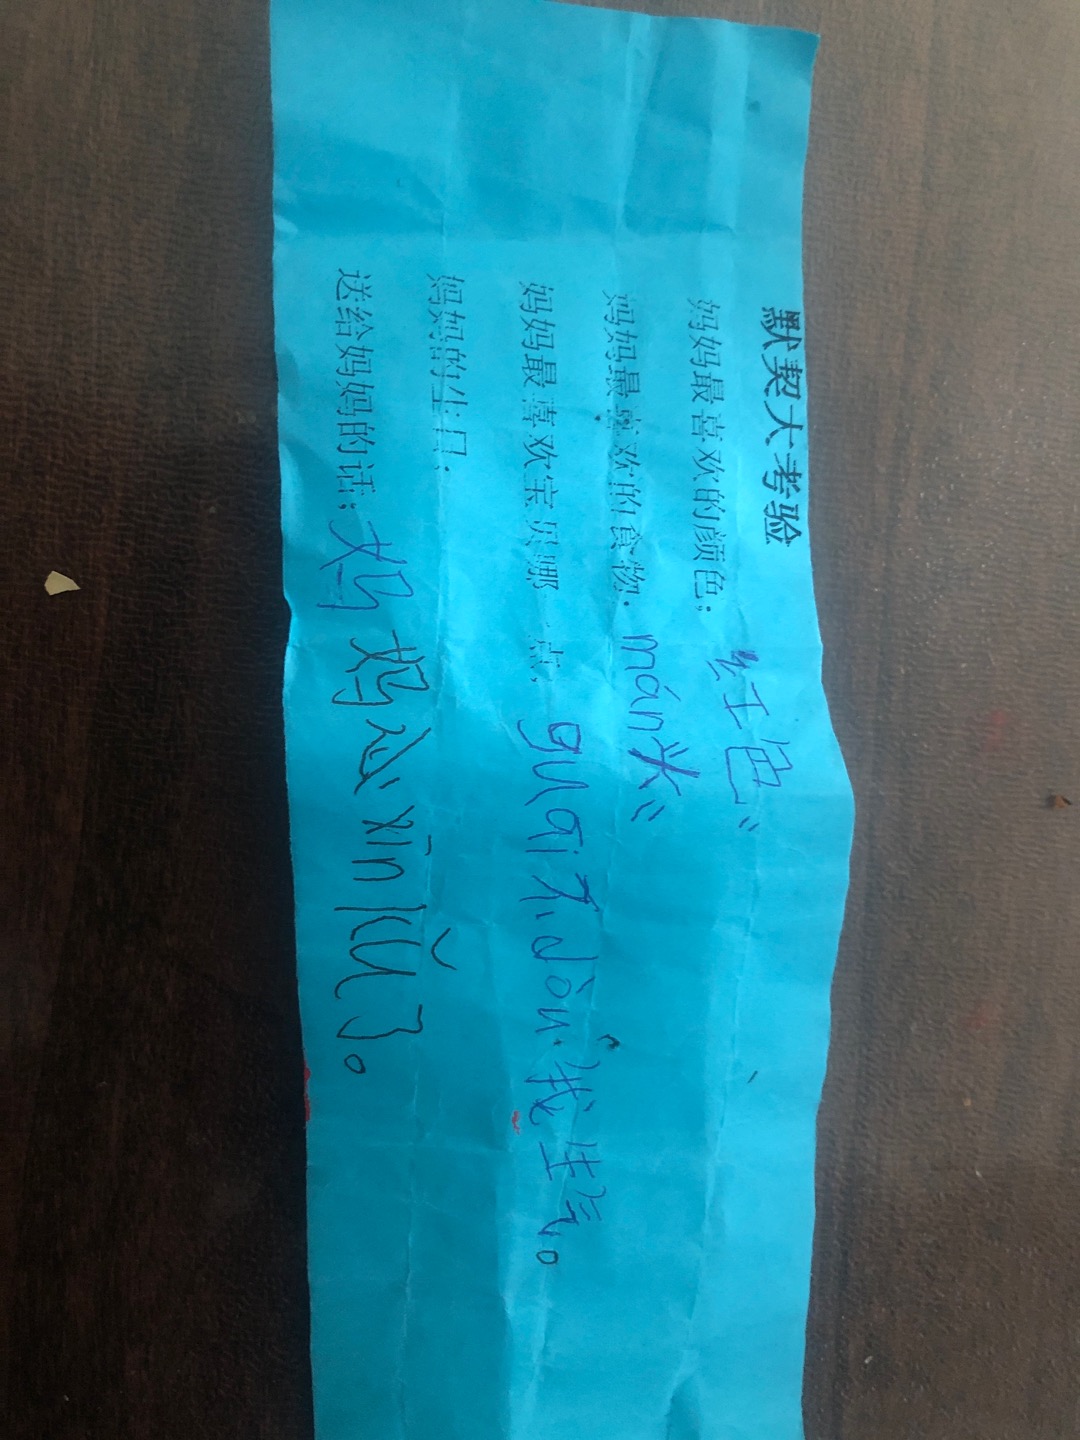 默契大考验
妈妈最喜欢的颜色：红色
妈妈最喜欢的食物：mán头
妈妈最喜欢宝贝哪一点：guāi不dòu我生气。
妈妈的生日：
送给妈妈的话：妈妈心xīn kǔ了。